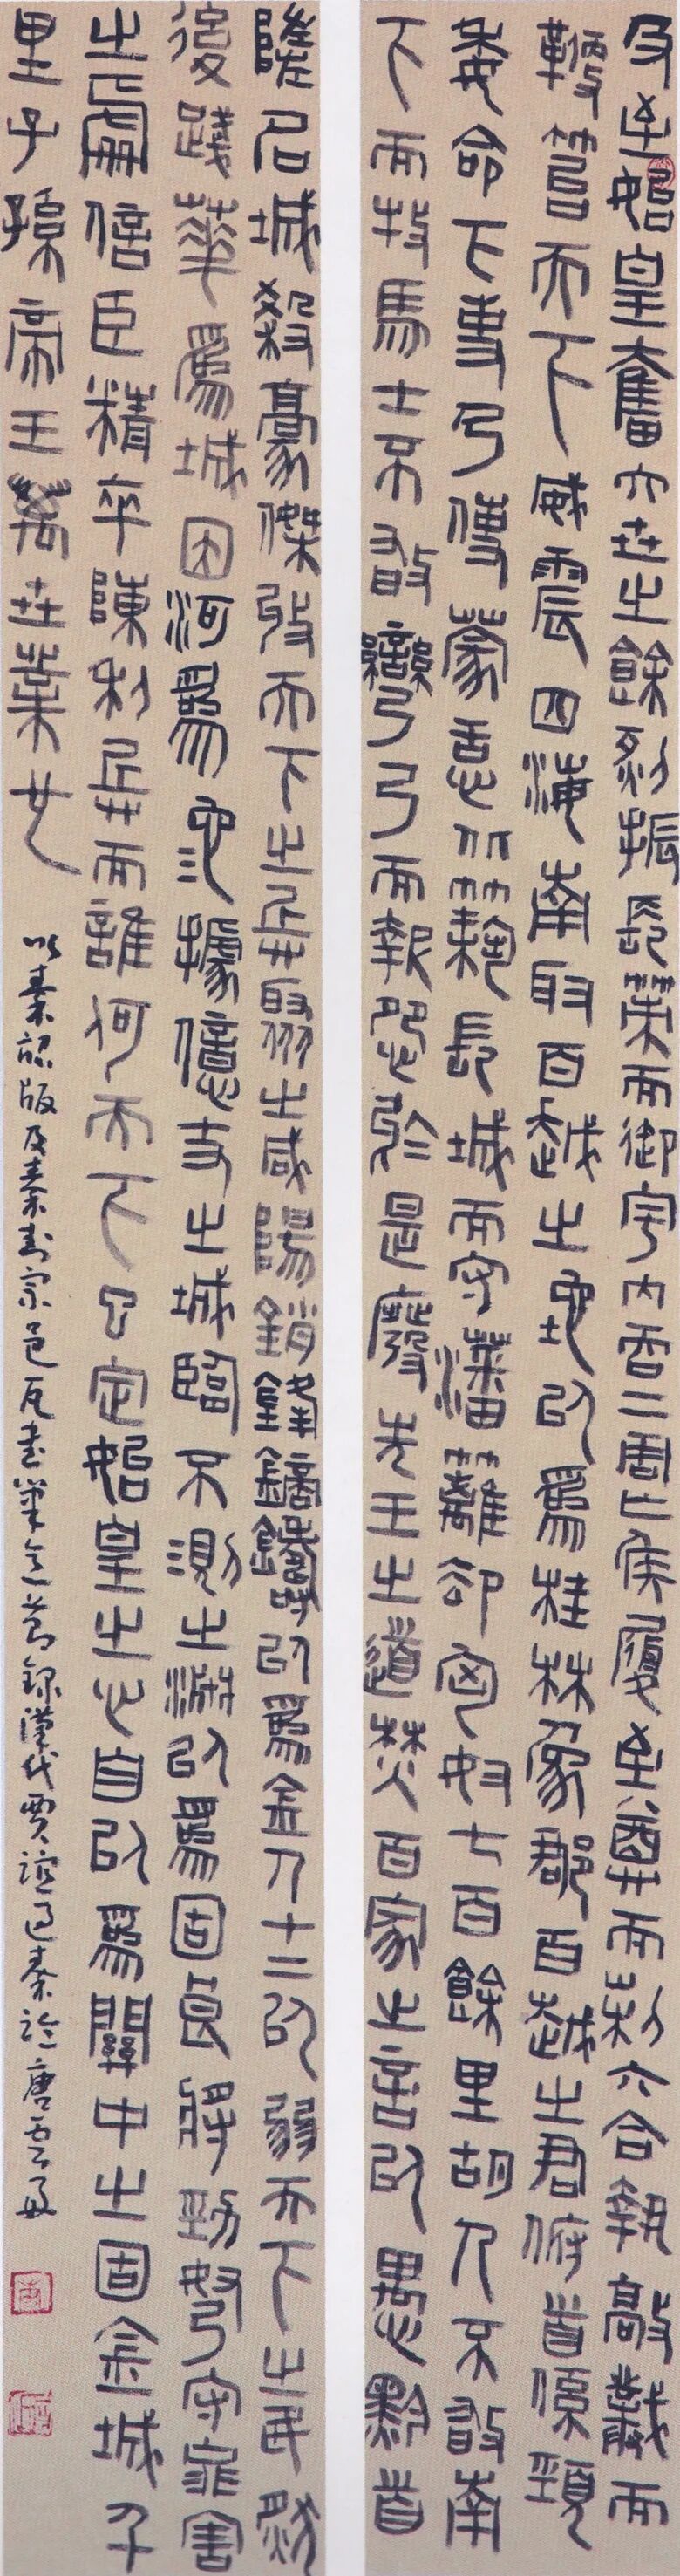 及至始皇奮六世之餘烈振長策而御宇內吞二周亡侯履至尊而制六合執敲撲而
鞭笞天下威震四海南取百越之地以為桂林象郡百越之君俯首係頸
委命下吏乃使蒙恬北築長城而守藩籬卻匈奴七百餘里胡人不敢南
下而牧馬士不敢彎弓而報怨於是廢先王之道焚百家之言以愚黔首
隳名城殺豪傑收天下之兵聚之咸陽銷鋒鏑鑄以為金人十二以弱天下之民然
後踐華為城因河為池據億丈之城臨不測之淵以為固良將勁弩守要害
之處信臣精卒陳利兵而誰何天下已定始皇之心自以為關中之固金城千
里子孫帝王萬世業也
以秦詔版及秦封宗邑瓦書筆意節錄漢代賈誼過秦論唐雲